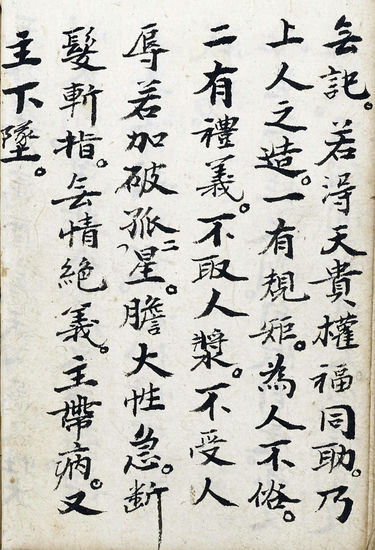 無記。若得天貴權福同助。乃
上人之造。一有規矩。為人不俗。
二有禮義。不取人漿。不受人
辱若加破孤二星。膽大性急。断
髮斬指。無情絕義。主帶病。又
主下墜。